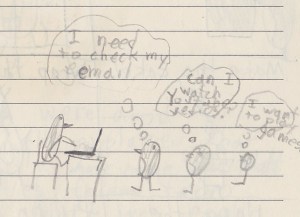 I need
to check my
email
can I
watch
I want
to play
games